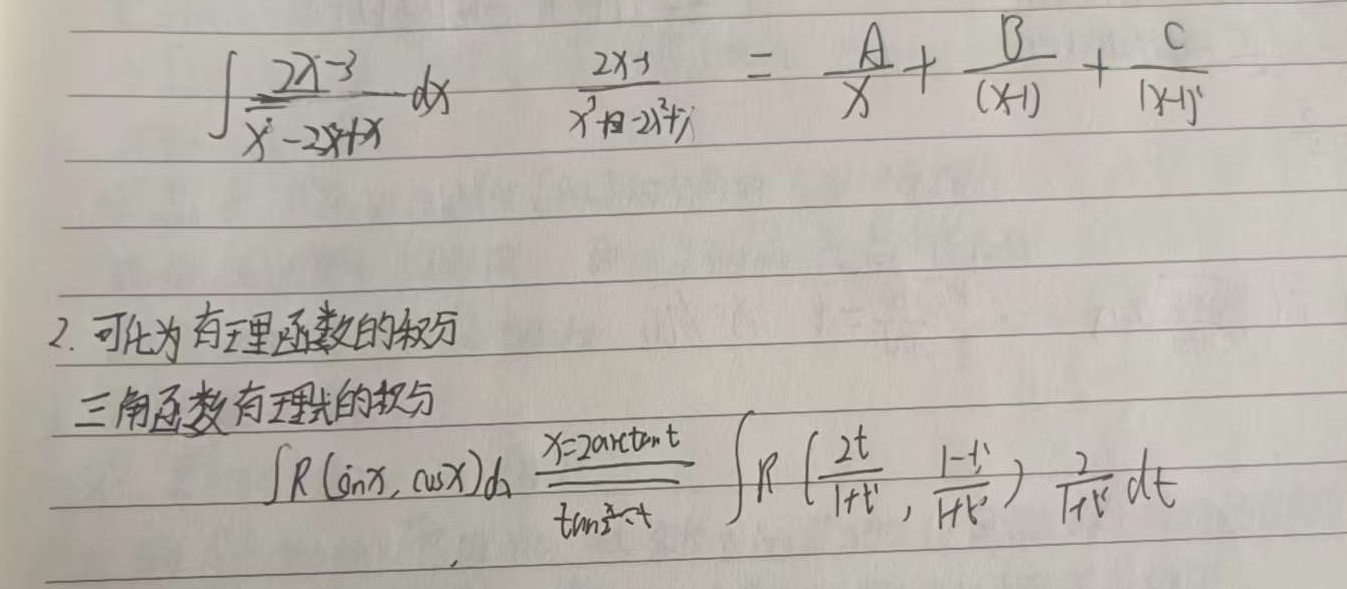 ∫ (2x-3)/(x³-2x²+x) dx   (2x-3)/(x³-2x²+x) = A/x + B/(x-1) + C/(x-1)²
2. 可化为有理函数的积分
三角函数有理式的积分
∫R(sinx, cosx)dx ══ x=2arctan t, tan x/2=t ══ ∫R(2t/(1+t²), (1-t²)/(1+t²)) 2/(1+t²) dt